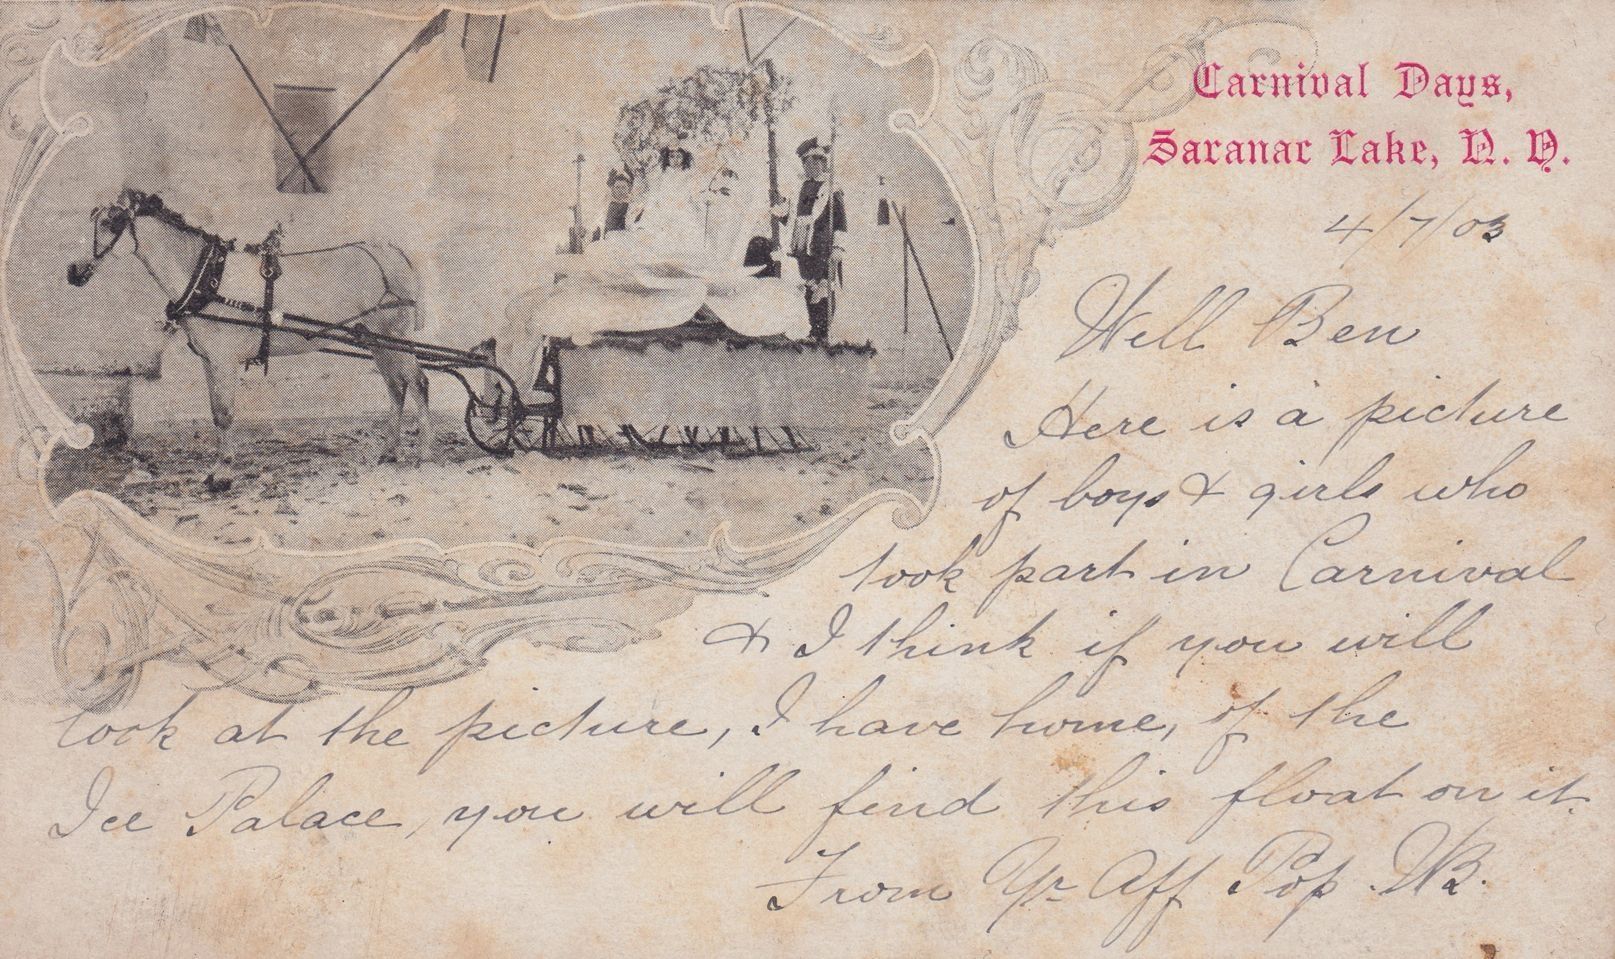 Carnival Days,
Saranac Lake, N. Y.
4/7/03
Well Ben
Here is a picture
of boys & girls who
took part in Carnival
& I think if you will
look at the picture, I have home, of the
Ice Palace, you will find this float on it.
From Yr Aff Pop. WB.